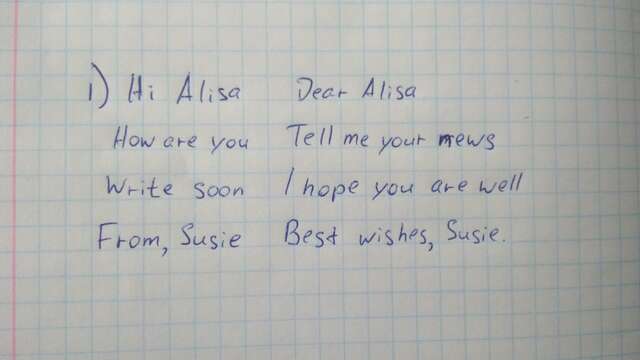 1) Hi Alisa Dear Alisa
How are you Tell me your news
Write soon I hope you are well
From, Susie Best wishes, Susie.